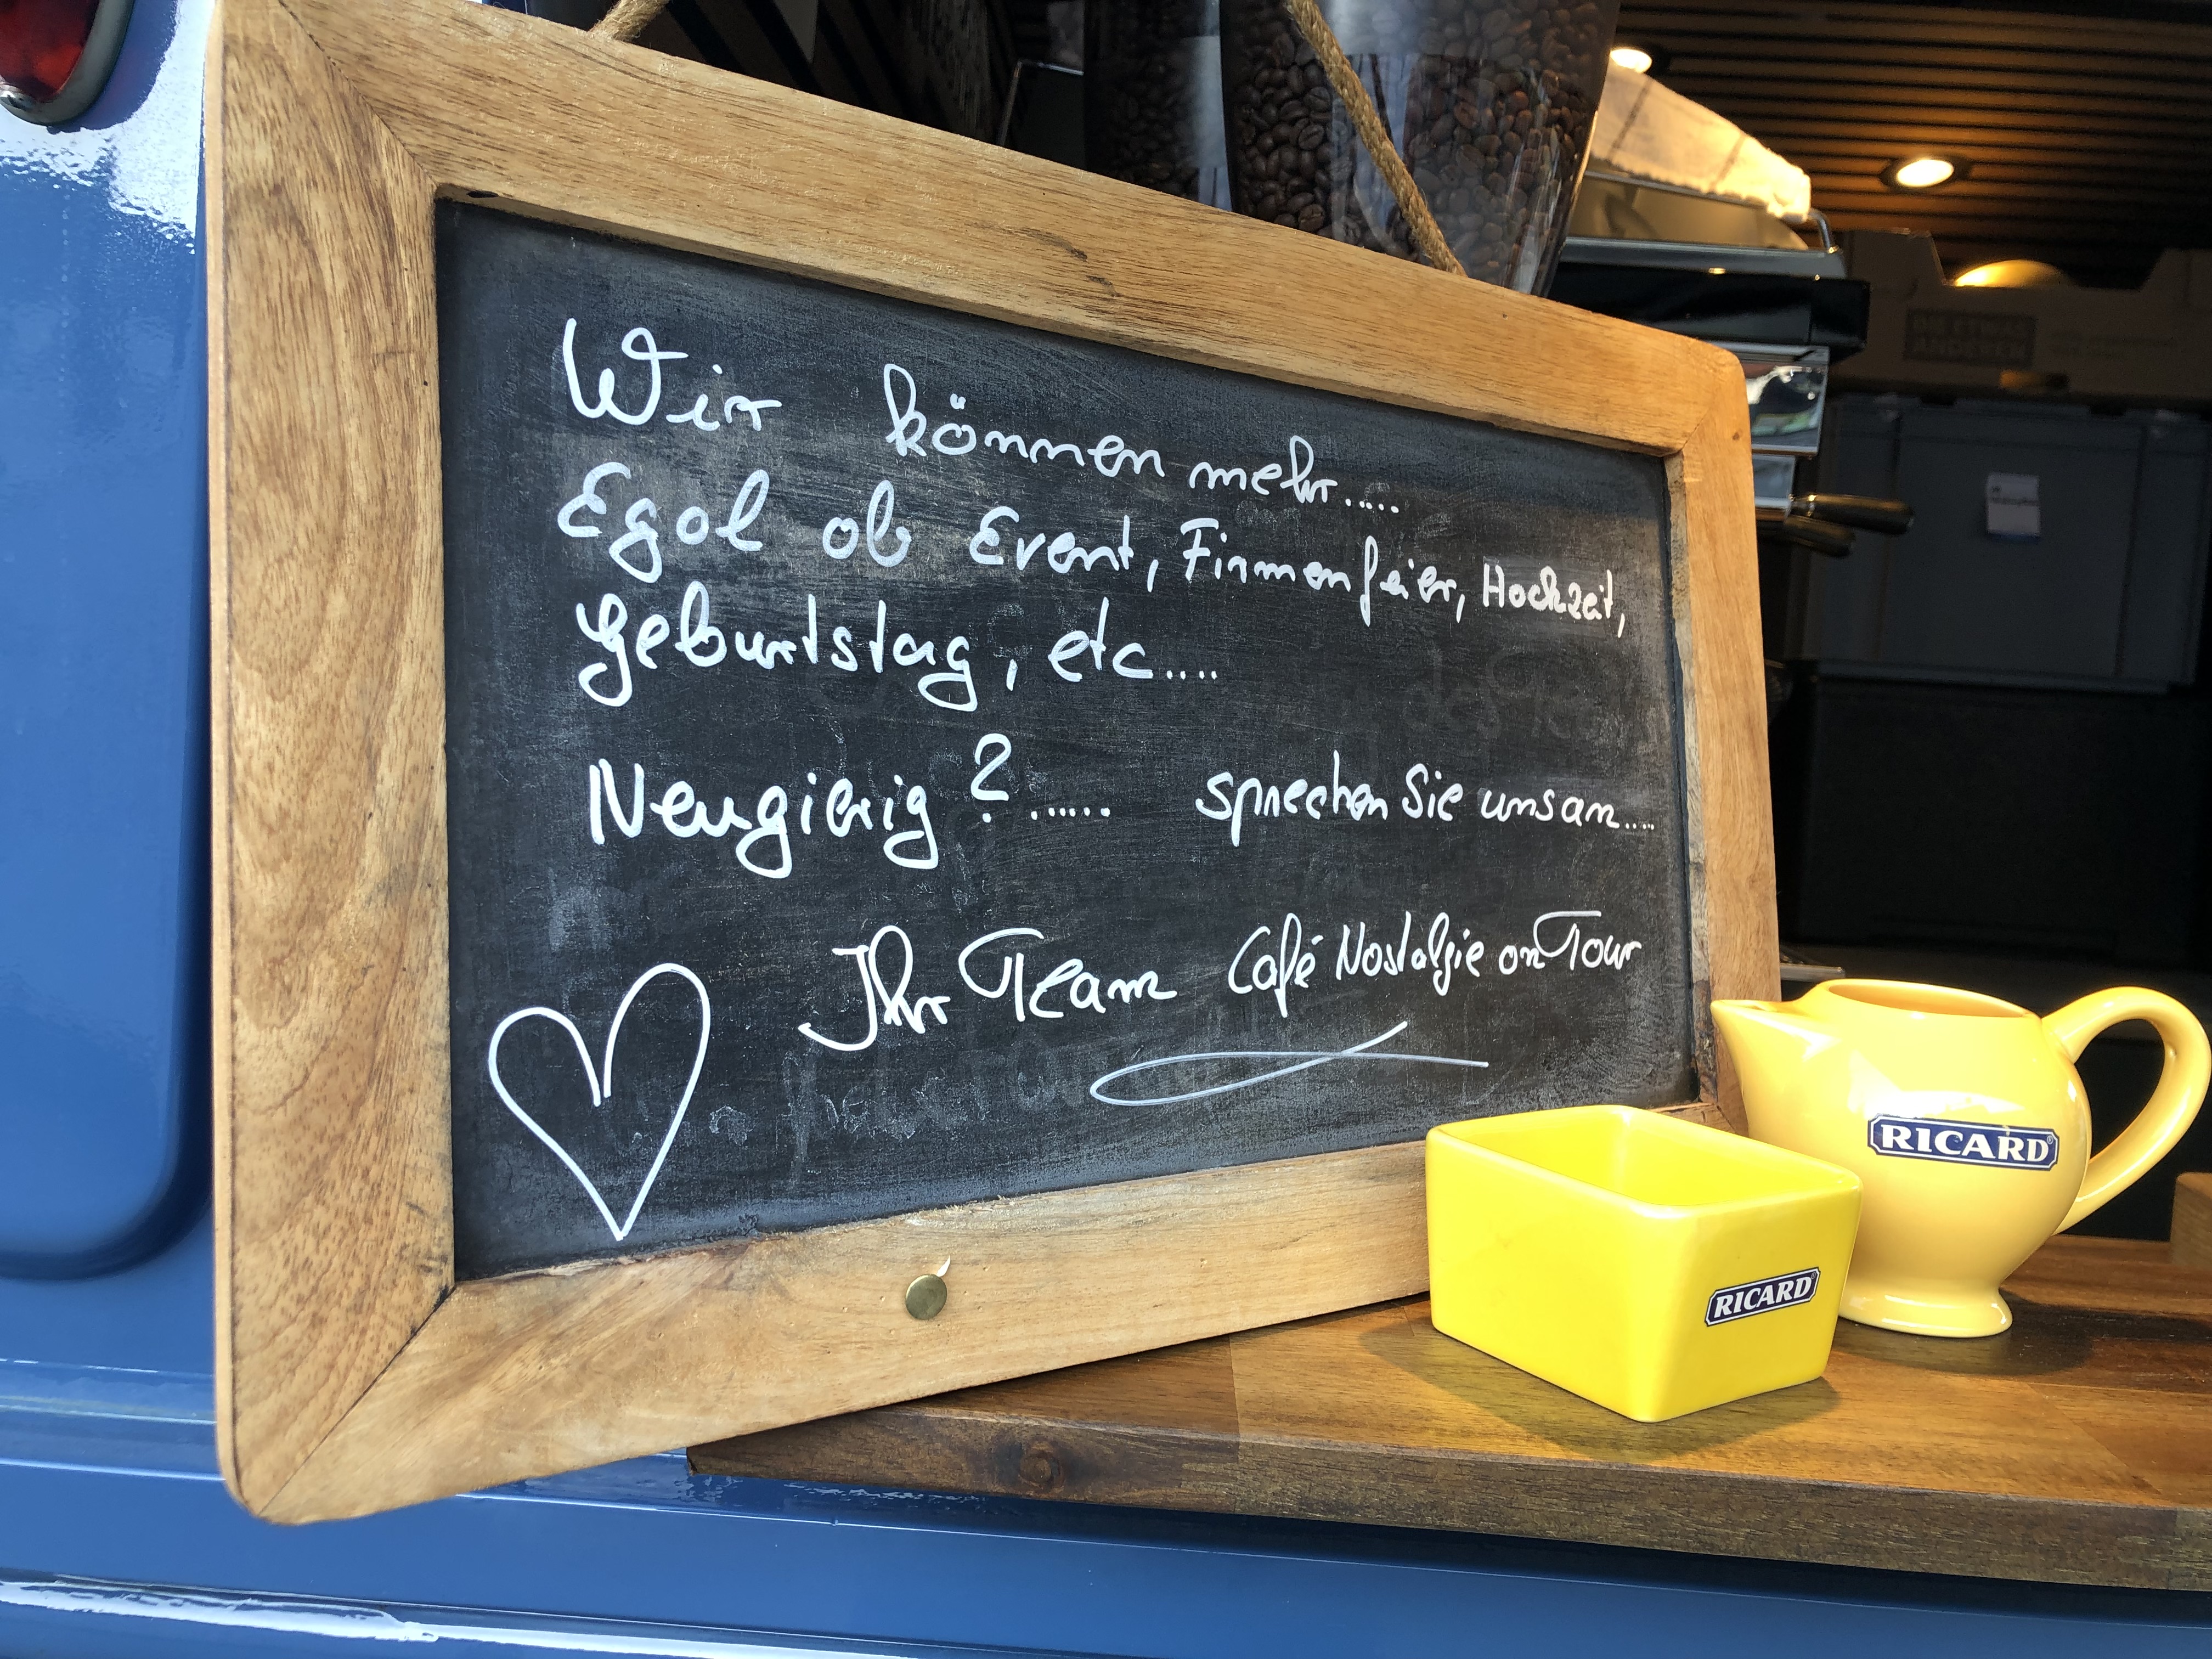 Wir können mehr.....
Egal ob Event, Firmenfeier, Hochzeit,
Geburtstag, etc....
Neugierig ?...... sprechen Sie uns an....
Ihr Team Café Nostalgie on Tour
RICARD
RICARD
ANDEREN